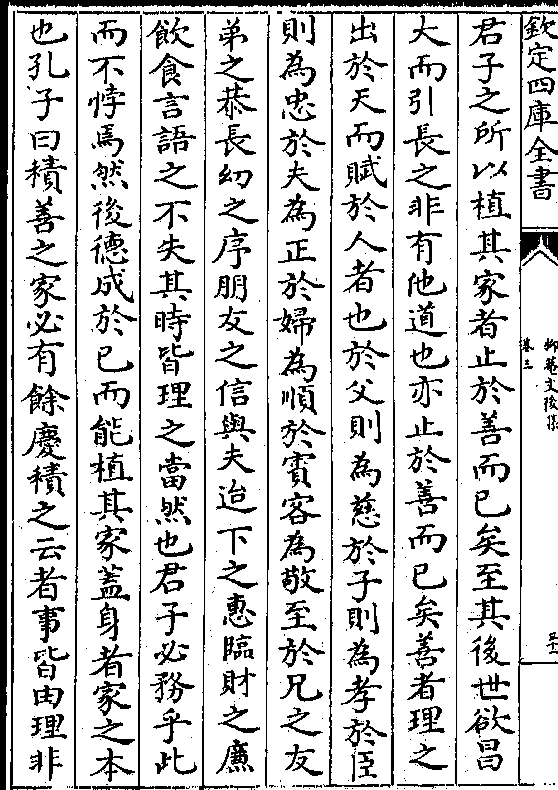 欽定四庫全書
卷三
君子之所以植其家者止於善而已矣至其後世欲昌
大而引長之非有他道也亦止於善而已矣善者理之
出於天而賦於人者也於父則為慈於子則為孝於臣
則為忠於夫為正於婦為順於賓客為敬至於兄之友
弟之恭長幼之序朋友之信與夫迨下之惠臨財之廉
飲食言語之不失其時皆理之當然也君子必務乎此
而不悖焉然後德成於已而能植其家蓋身者家之本
也孔子曰積善之家必有餘慶積之云者事皆由理非